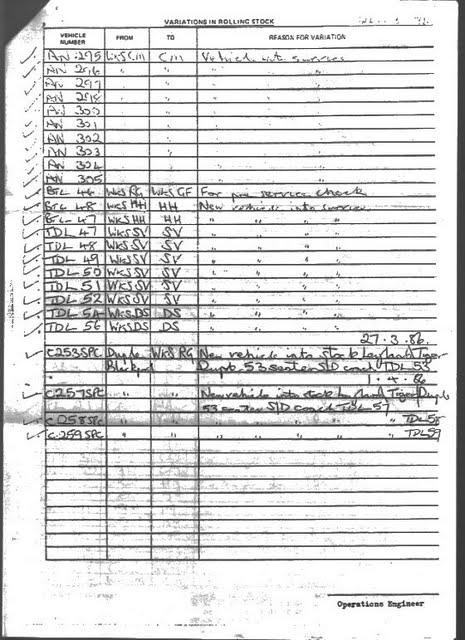 VARIATIONS IN ROLLING STOCK
VEHICLE NUMBER FROM TO REASON FOR VARIATION
AN 295 WKS CM CM Vehicle into service
AN 296 " " " "
AN 297 " " " "
AN 298 " " " "
AN 300 " "
AN 301 "
AN 302 "
AN 303 "
AN 304 "
AN 305 "
BTL 46 WKS RG WKS GF For pre service check
BTL 48 WKS HH HH New vehicle into service
BTL 47 WKS HH HH " " " "
TDL 47 WKS SV SV " " " "
TDL 48 WKS SV SV " " " "
TDL 49 WKS SV SV " " " "
TDL 50 WKS SV SV " " " "
TDL 51 WKS SV SV " " " "
TDL 52 WKS SV SV " " " "
TDL 54 WKS DS DS " " " "
TDL 56 WKS DS DS " " " "
27.3.86.
C253SPC Duple WKS RG New vehicle into stock Leyland Tiger
Blackpool Duple 53 seater S/D coach TDL 53
1.4.86
C257SPC " " New vehicle into stock Leyland Tiger Duple
53 seater S/D coach TDL 57
C258SPC " " " " " " TDL 58
C259SPC " " " " " " TDL 59
Operations Engineer